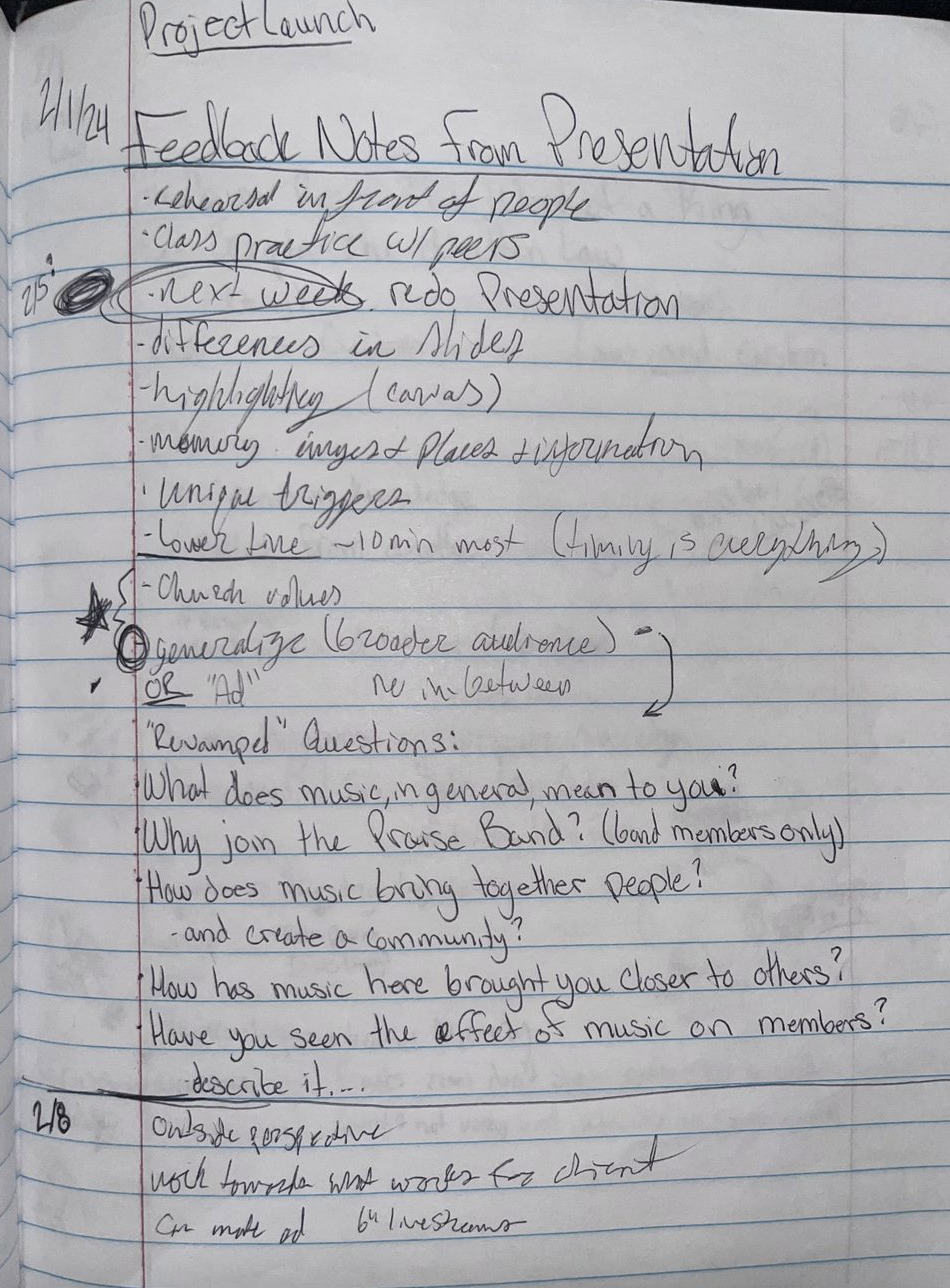 Project Launch
2/1/24
Feedback Notes from Presentation
·rehearsal in front of people
·Class practice w/ peers
2/5:
·next week. redo Presentation
-differences in slides
-highlighting (canvas)
-memory images + Places + information
·Unique triggers
-lower time ~10min most (timing is everything)
-Church values
generalize (broader audience)
OR "Ad" no in-between
"Revamped" Questions:
What does music, in general, mean to you?
Why join the Praise Band? (band members only)
How does music bring together people?
-and create a community?
How has music here brought you closer to others?
Have you seen the effect of music on members?
-describe it....
2/8
Outside perspective
work towards what works for client
Can make ad livestreams